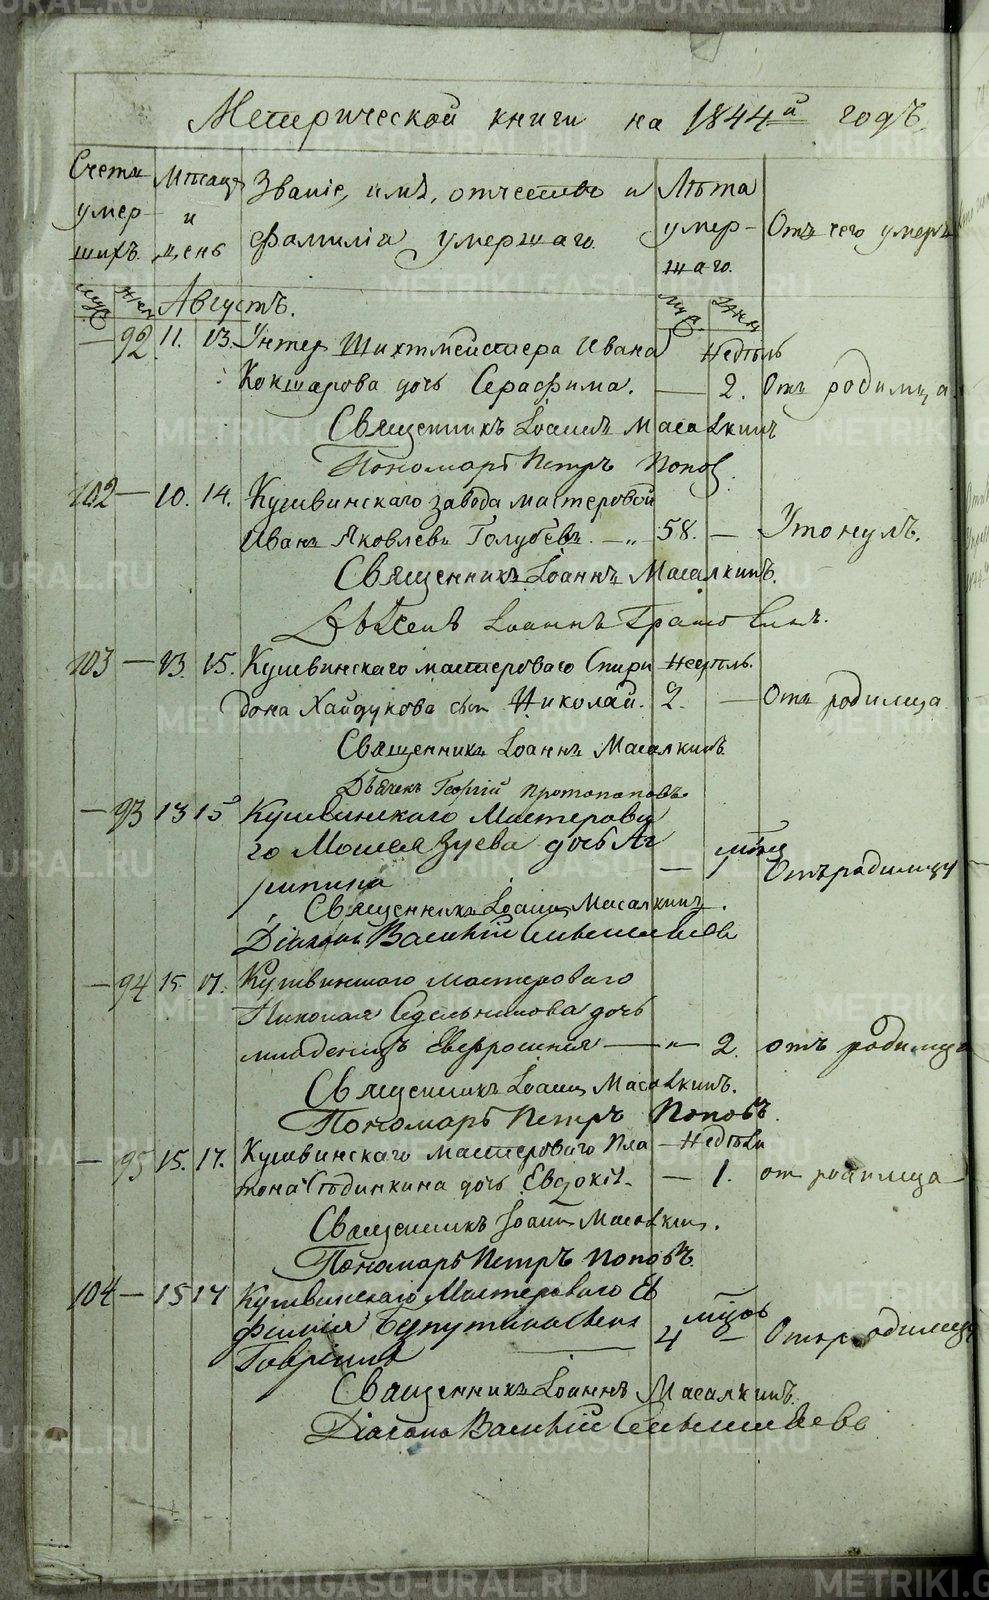 Метрической книги на 1844й годъ.
Счетъ умер- шихъ. Мѣсяцъ и день Званіе, имѣ, отчество и фамилія умершаго. Лѣта умер- шаго. Отъ чего умеръ
муж. жен. Августъ. муж. жен.
— 92. 11. 13. Унтер Шихтмейстера Ивана Недѣль
Кокшарова дочь Серафима. — 2. Отъ родимца.
Священникъ Іоаннъ Масалкинъ
Пономарь Петръ Попов.
102 — 10. 14. Кушвинскаго завода мастеровой
Иванъ Яковлевъ Голубевъ. — „ 58. — Утонулъ.
Священникъ Іоаннъ Масалкинъ.
Іоаннъ
103 — 13. 15. Кушвинскаго мастероваго Спири Недѣль.
дона Хайдукова сын Николай. 2. — Отъ родимца
Священникъ Іоаннъ Масалкинъ
Дьячекъ Георгій Протопоповъ
— 93 13 15 Кушвинскаго Мастерова
го Моисея Зуева дочь Аг мѣсяц
рипина — 1 Отъ родимца
Священникъ Іоаннъ Масалкинъ.
Діаконъ Василій
— 94 15. 17. Кушвинскаго мастероваго
Николая Седельникова дочь
младенецъ Евфросинія — „ — 2. отъ родимца
Священникъ Іоаннъ Масалкинъ.
Пономарь Петръ Поповъ.
— 95 15. 17. Кушвинскаго мастероваго Пла — Недѣли
тона дочь Евдокія. — 1. от родимца
Священникъ Іоаннъ Масалкинъ.
Пономарь Петръ Поповъ.
104 — 15 17 Кушвинскаго Мастероваго Ев
фимія сынъ 4 мѣсцовъ — Отъ родимца
Гавріилъ
Священникъ Іоаннъ Масалкинъ.
Діаконъ Василій
METRIKI.GASO-URAL.RU